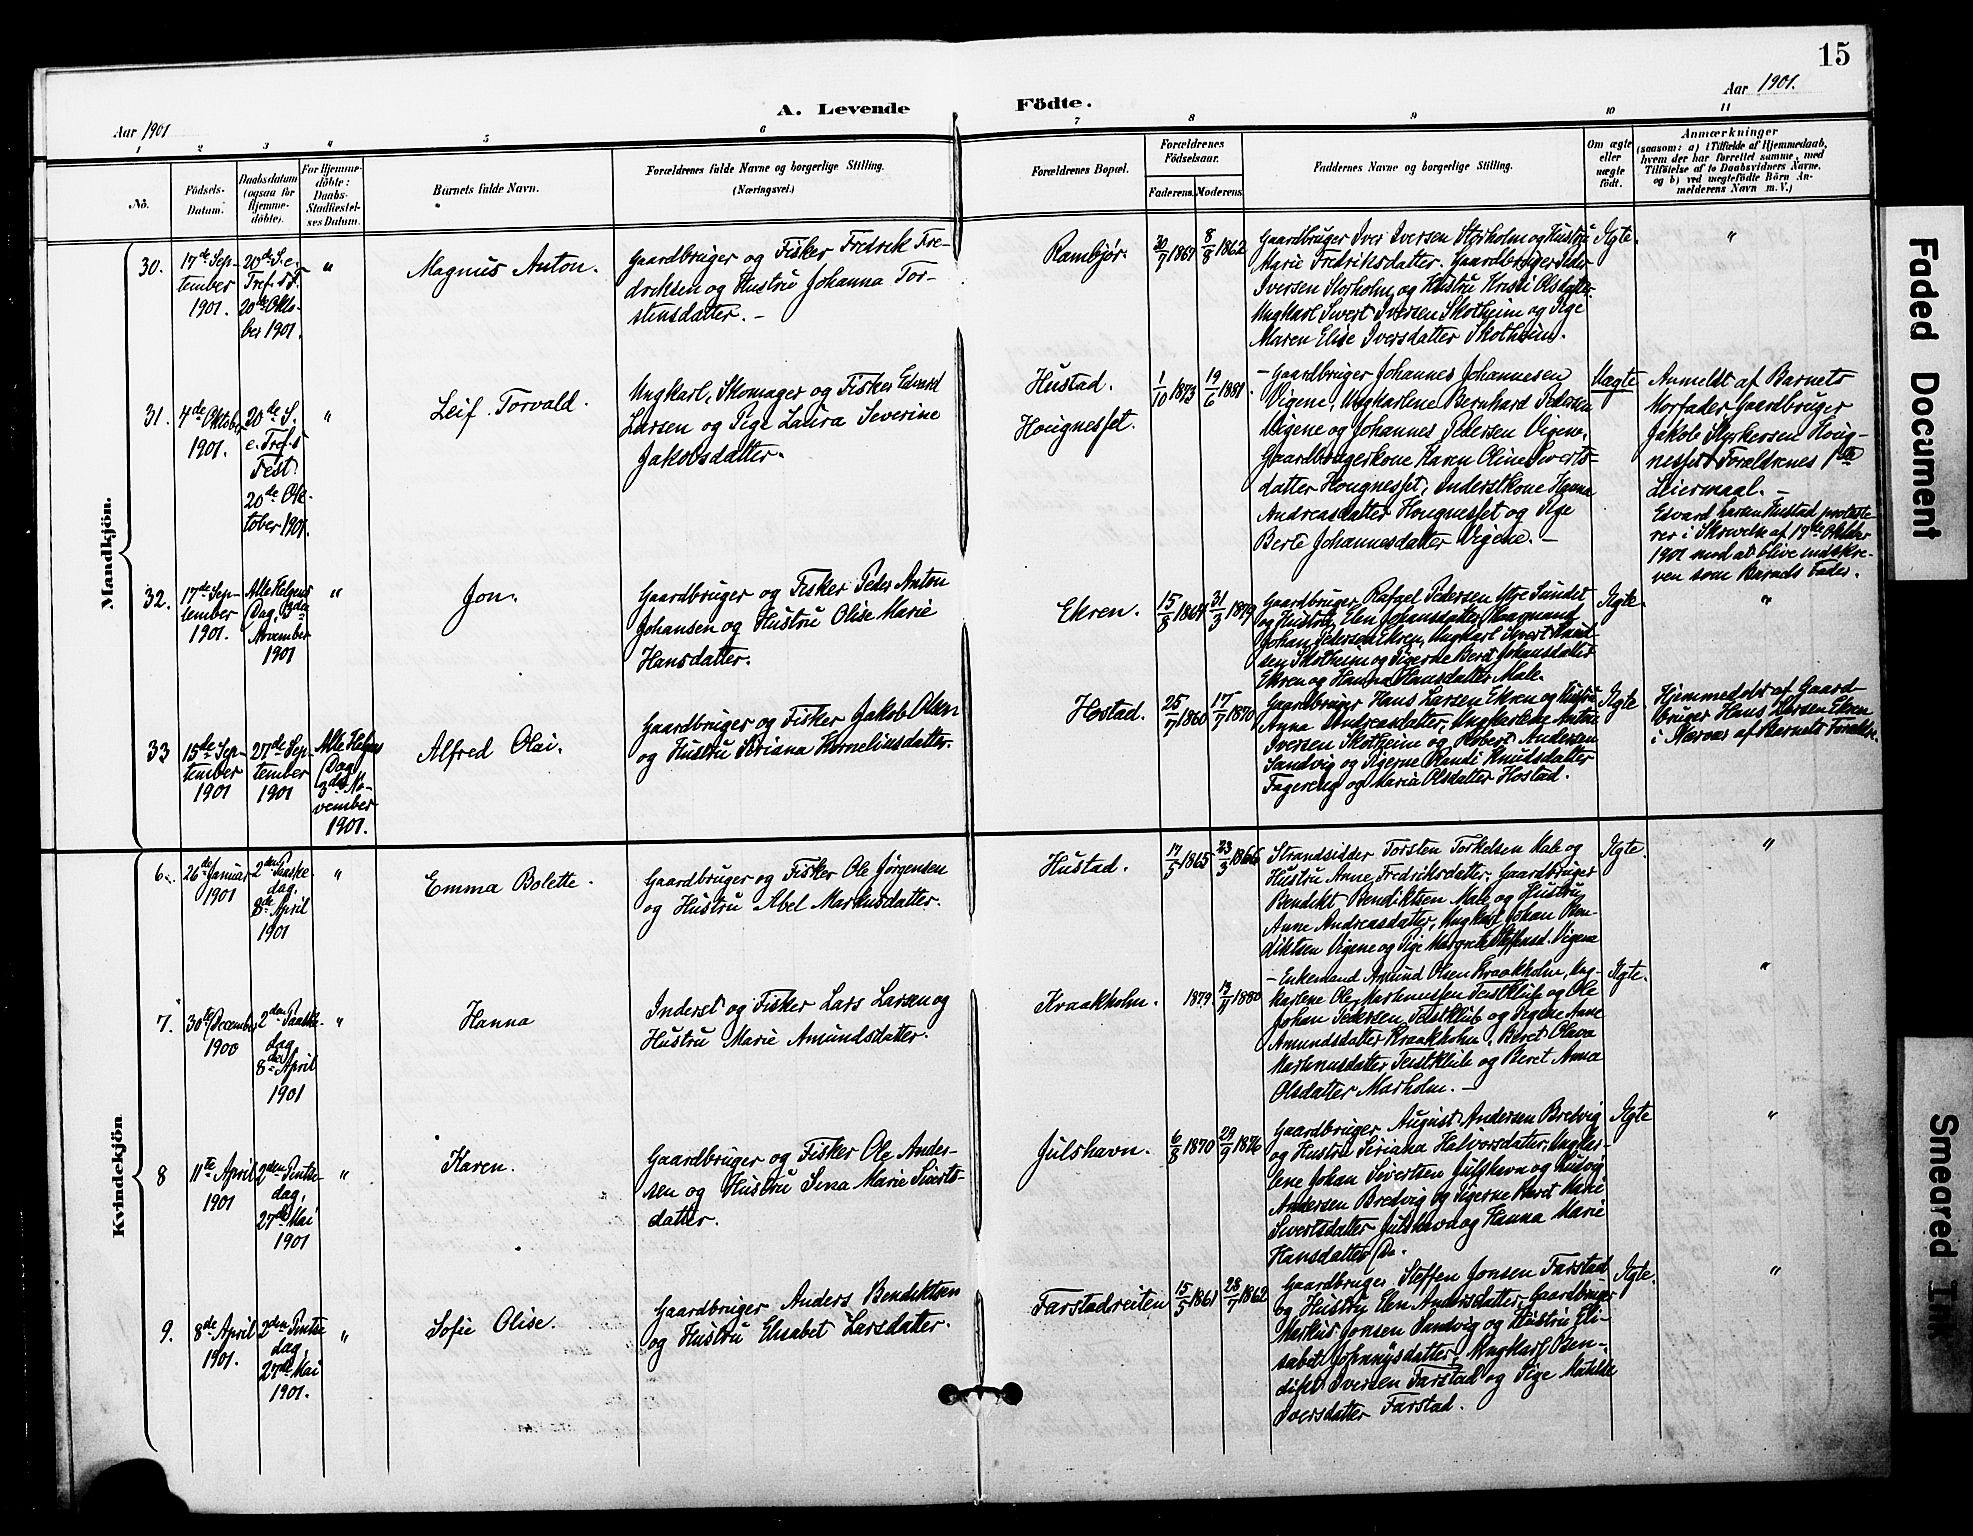 15
Aar 1901.
A. Levende Födte.
Aar 1901
1 2 3 4 5 6 7 8 9 10 11
No.
Födsels-
Datum.
Daabsdatum
(ogsaa for
Hjemme-
döbte).
For Hjemme-
döbte:
Daabs-
Stadfæstel-
ses Datum.
Barnets fulde Navn.
Forældrenes fulde Navne og borgerlige Stilling.
(Næringsvei.)
Forældrenes Bopæl.
Forældrenes
Födselsaar.
Faderens. Moderens.
Faddernes Navne og borgerlige Stilling.
Om ægte
eller
uægte
födt.
Anmærkninger
(saasom: a) i Tilfælde af Hjemmedaab,
hvem der har forrettet samme, med
Tilföielse af to Daabsvidners Navne.
og b) ved uægtefödte Börn An-
melderens Navn m. V.)
Mandkjön.
30.
17de Sep-
tember
1901.
20de S. e.
Tref. s F.
20de Okto-
ber 1901.
"
Magnus Anton.
Gaardbruger og Fisker Fredrik Fre-
driksen og Hustru Johanna Tor-
stensdatter. -
Rambjør.
30/7 1867
8/8 1862
Gaardbruger Iver Iversen Storholm og Hustru
Marie Fredriksdatter. Gaardbruger Peder
Iversen Storholm og Hustru Kristi Olsdatter
Ungkarl Sivert Iversen Skotheim og Pige
Maren Elise Iversdatter Skotheim.
Ægte.
"
31.
4de Oktober
1901.
20de S.
e. Tref. s
Fest
20de Ok-
tober 1901.
"
Leif Torvald.
Ungkarl, Skomager og Fisker Edvard
Larsen og Pige Laura Severine
Jakobsdatter.
Hustad.
Hougnesset.
1/10 1873
19/6 1881.
- Gaardbruger Johannes Johannesen
Vigene, Ungkarlene Bernhard Pedersen
Vigene og Johannes Pedersen Vigene,
Gaardbrugerkone Karen Oline Siverts-
datter Hougnesset, Inderstkone Hanna
Andreasdatter Hougnesset og Pige
Berte Johannesdatter Vigene. -
Uægte
Anmeldt af Barnets
Morfader Gaardbruger
Jakob Styrkersen Houg-
nesset Forældrenes 1ste
Leiermaal. -
Edvard Larsen Hustad proteste-
rer i Skrivelse af 17de Oktober
1901 mod at blive indskre-
ven som Barnets Fader.
32.
17de Sep-
tember
1901.
Alle Helgens
Dag, 3die
November
1901
"
Jon.
Gaardbruger og Fisker Peder Anton
Johansen og Hustru Olise Marie
Hansdatter.
Ekren.
15/8
31/3 1879
Gaardbruger Rafael Pedersen Ytre Sundet
og Hustru Elen Johansdatter, Kaarmand
Johan Pedersen Ekren, Ungkarl Sivert Knud-
sen Skotheim og Pigerne Beret Johansdatter
Ekren og Hanna Hansdatter Male.
Ægte.
"
33
15de Sep-
tember
1901
27de Sep-
tember
1901
Alle Helgens
Dag
3die No-
vember
1901.
Alfred Olai.
Gaardbruger og Fisker Jakob Olsen
og Hustru Siriana Korneliusdatter.
Hostad.
25/7 1860
17/7 1870
Gaardbruger Hans Larsen Ekren og Hustru
Anna Andreasdatter, Ungkarlene Anton
Iversen Skotheim og Robert Andersen
Sandvig og Pigerne Randi Knudsdatter
Fagereng og Maria Olsdatter Hostad.
Ægte
Hjemmedøbt af Gaard-
bruger Hans Larsen Ekren
i Nærvær af Barnets Forældre.
Kvindekjön
6.
26de Januar
1901
2den Paaske-
dag.
8de April
1901
"
Emma Bolette.
Gaardbruger og Fisker Ole Jørgensen
og Hustru Abel Markusdatter.
Hustad.
17/5 1865
23/3 1866
Strandsidder Torsten Torkelsen Male og
Hustru Anne Fredriksdatter, Gaardbruger
Bendikt Bendiktsen Male og Hustru
Anne Andreasdatter, Ungkarl Johan Ben-
diktsen Vigene og Pige Margrete Steffensd. Vigene
Ægte.
"
7.
30te December
1900
2den Paaske-
dag
8de April
1901
"
Hanna
Inderst og Fisker Lars Larsen og
Hustru Marie Amundsdatter.
Kraakholm.
1879
1880
- Enkemand Amund Olsen Kraakholm, Ung-
karlene Ole Markussen Teistklub og Ole
Johan Pedersen Teistklub og Pigerne Anne
Amundsdatter Kraakholm, Beret Olava
Markusdatter Teistklub og Beret Anna
Olsdatter Marholm. -
Ægte.
"
8
11te April
1901
2den Pintse-
dag,
27de Mai
1901
"
Karen.
Gaardbruger og Fisker Ole Ander-
sen og Hustru Sina Marie Siverts-
datter.
Julshavn.
6/8 1870
29/9 1876
Gaardbruger August Andersen Bredvig
og Hustru Siriana Halvorsdatter, Ungkar-
lene Johan Sivertsen Julshavn og Ludvig
Andersen Bredvig og Pigerne Beret Marie
Sivertsdatter Julshavn og Hanna Marie
Hansdatter Do.
Ægte
"
9.
8de April
1901.
2den Pintse
dag,
27de Mai
1901.
"
Sofie Olise.
Gaardbruger Anders Bendiktsen
og Hustru Elisabet Larsdatter.
Farstadreiten
15/5 1861
28/7 1862
Gaardbruger Steffen Jonsen Farstad
og Hustru Elen Andersdatter, Gaardbruger
Markus Jonsen Sandvig og Hustru Eli-
sabet Johannesdatter, Ungkarl Ben-
dikt Iversen Farstad og Pige Matilde
Iversdatter Farstad.
Ægte.
"
Faded Document
Smeared Ink